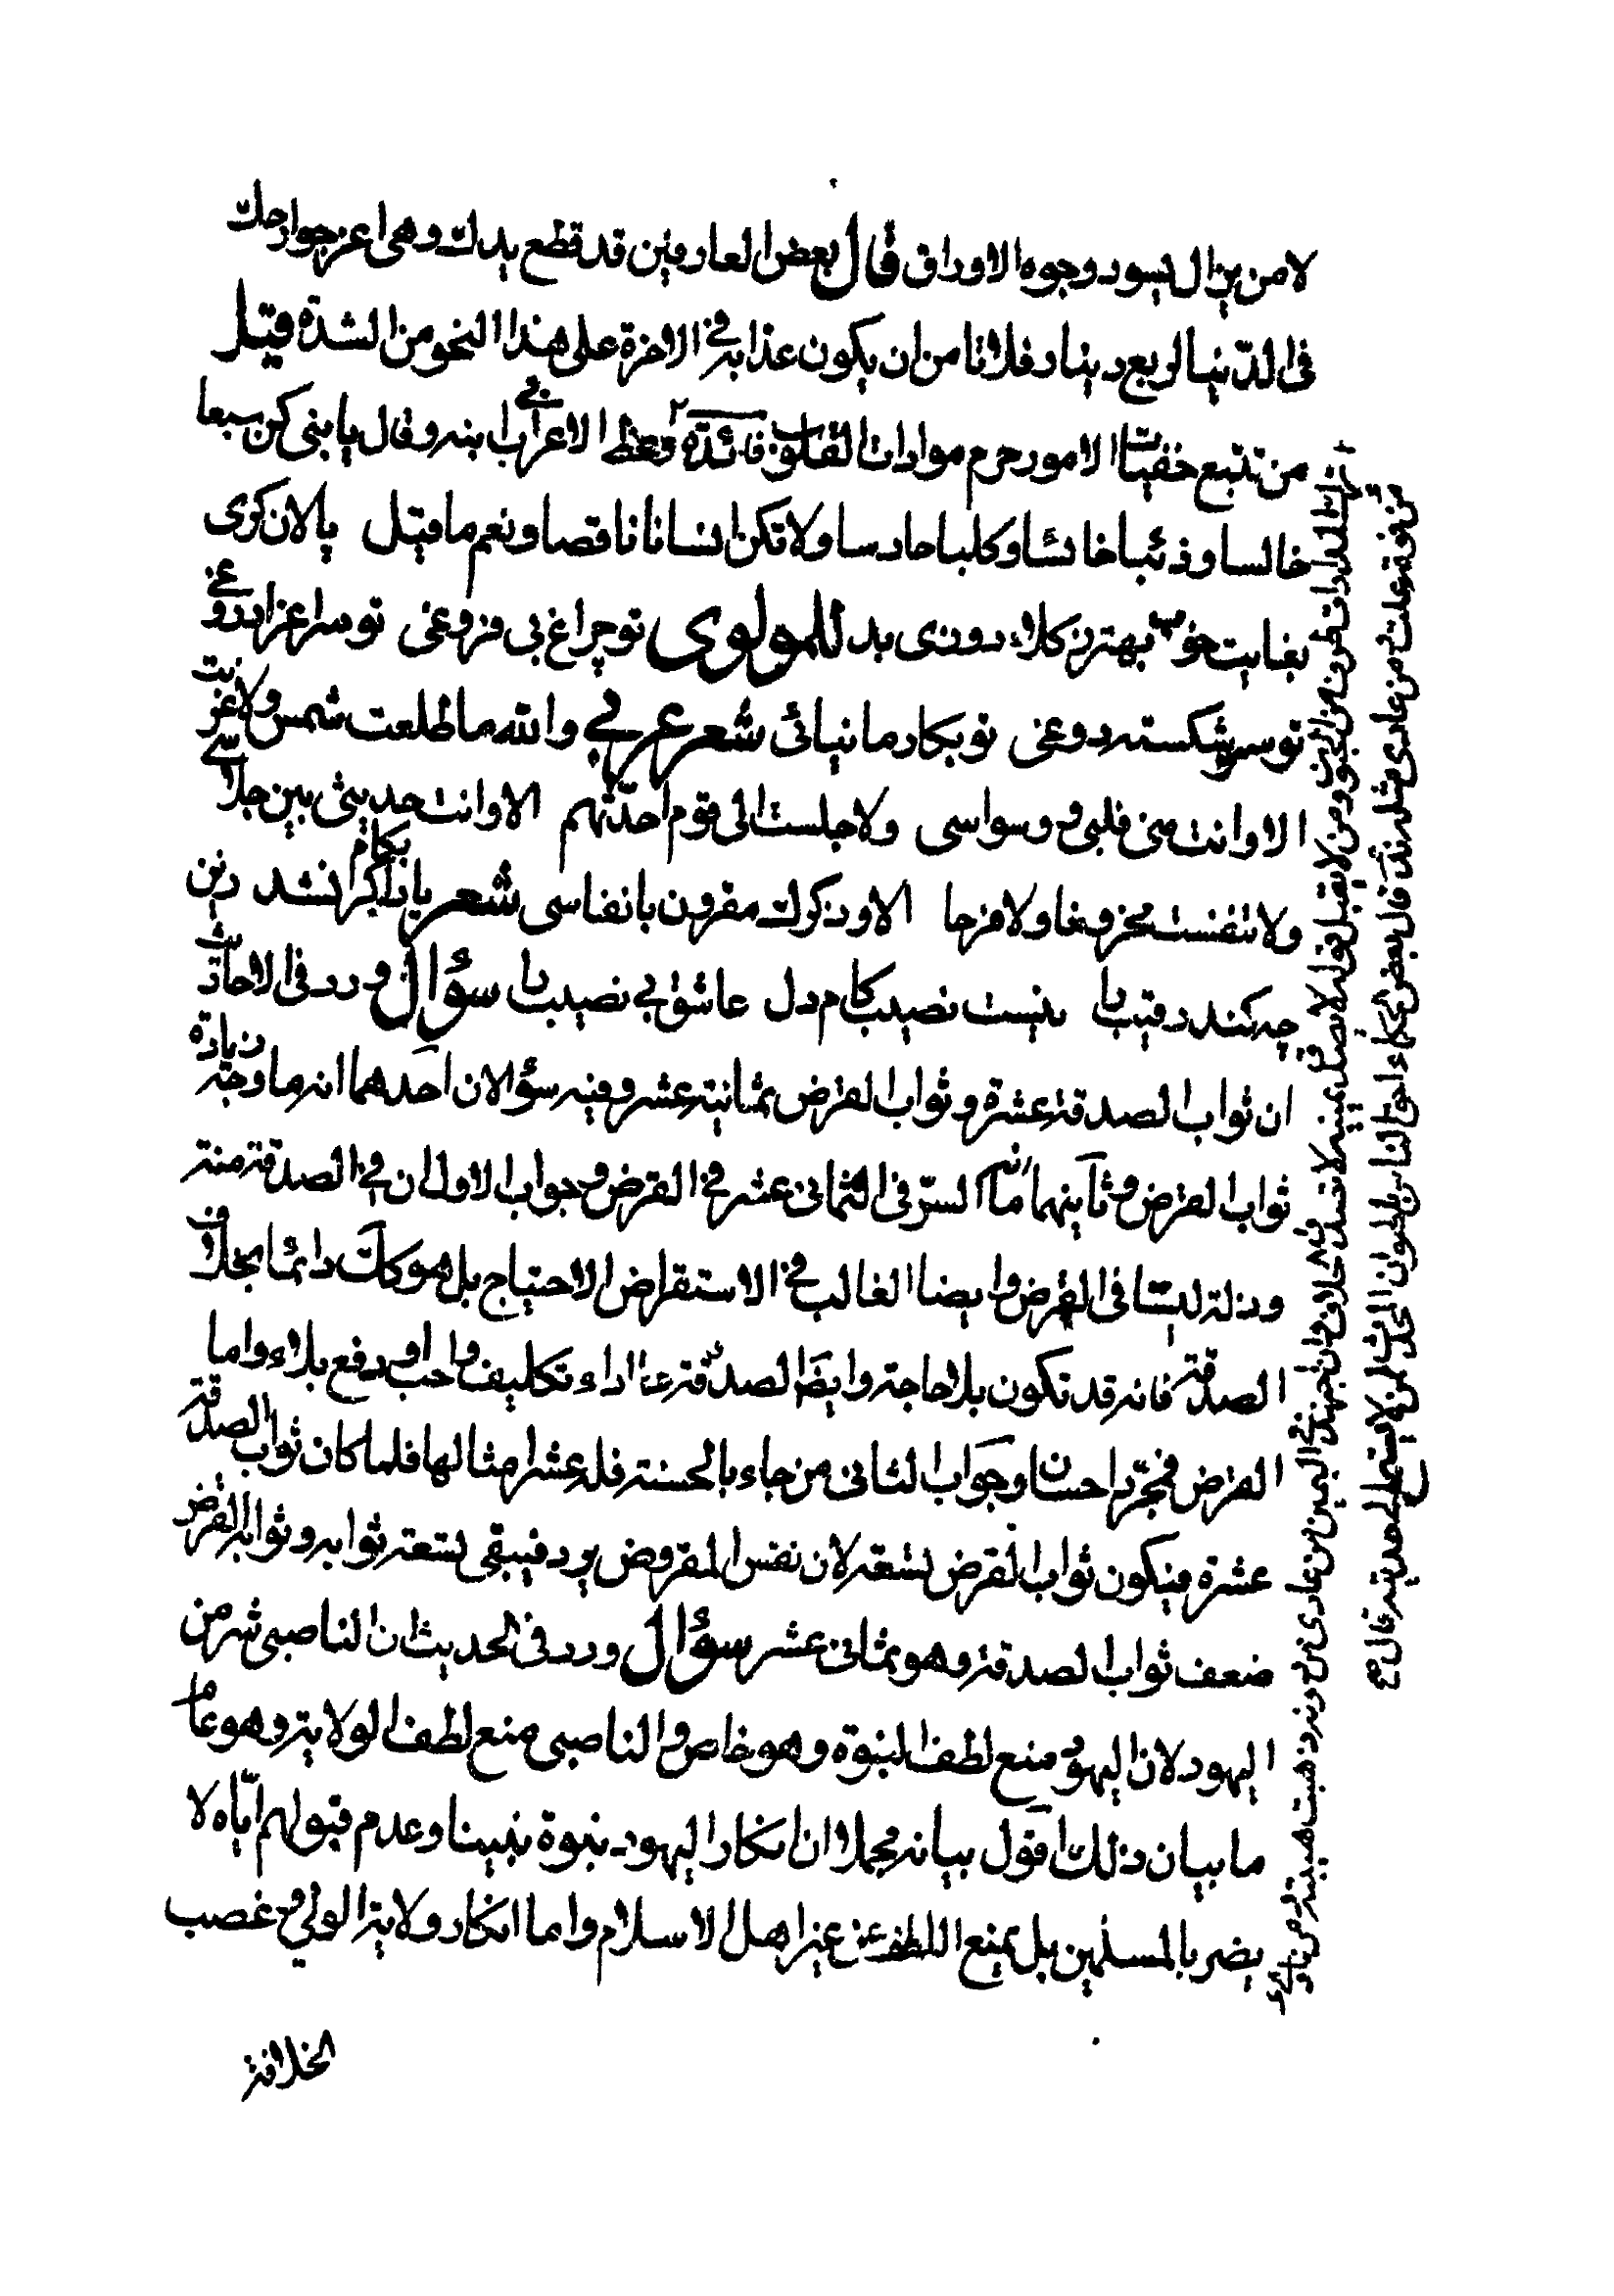 لا من يزال يسود وجوه الاوراق قال بعض العارفين قد قطع يدك وهى اعز جوارحك
فى الدّنيا لربع دينار فلا تامن ان يكون عذابه فى الاخرة على هذا النحو من الشدة قيل
من تتبع خفيات الامور حرم موادات القلوب فائدة وعظ الاعرابى ابنه وقال يا بنى كن سبعا
خالسا وذئبا خانسا وكلبا حارسا ولا تكن انسانا ناقصا ونعم ما قيل پالان كرى
بغايت خود بهتر ز كلاه دوزى بد للمولوى تو چراغ بى فروغى تو سراغز ابدروغى
تو سر شكسته دوغى تو بكار ما نيائى شعر عربى والله ما طلعت شمس ولا غربت
الا وانت منى قلبى ووسواسى ولا جلست الى قوم احدّثهم الا وانت حديثى بين جلاسى
ولا تنفست محزونا ولا فرحا الا وذكرك مقرون بانفاسى شعر يار اكر نشد بكام زين
چه كند رقيب را نيست نصيب كام دل عاشق بى نصيب را سؤال ورد فى الاحاديث
ان ثواب الصدقة عشرة وثواب القرض ثمانية عشر وفيه سؤالان احدهما انه ما وجه زيادة
ثواب القرض وثانيهما انه ما السرّ فى الثمانى عشر فى القرض وجواب الاول ان فى الصدقة منة
وذلة ليستا فى القرض وايضا الغالب فى الاستقراض الاحتياج بل هو كك دائما بخلاف
الصدقة فانه قد تكون بلا حاجة وايضا الصدقة اداء تكليف واجب او دفع بلاء واما
القرض فمجرد احسان وجواب الثانى من جاء بالحسنة فله عشر امثالها فلما كان ثواب الصدقة
عشرة فيكون ثواب القرض تسعة لان نفس المقروض يرد فيبقى تسعة ثوابه وثواب القرض
ضعف ثواب الصدقة وهو ثمانى عشر سؤال ورد فى الحديث ان الناصبى شر من
اليهود لان اليهود منع لطف النبوة وهو خاص والناصبى منع لطف الولاية وهو عام
ما بيان ذلك اقول بيانه مجملا ان انكار اليهود نبوة نبينا وعدم قبولهم ايّاه لا
يضر بالمسلمين بل يمنع اللطف عن غير اهل الاسلام واما انكار ولاية الولى وغصب
الخلافة
من لا يقبل قوله لا تصدق يمينه
قال بعض الحكماء احق الناس بالهوان المحدث لمن لا يستمع الى حديثه